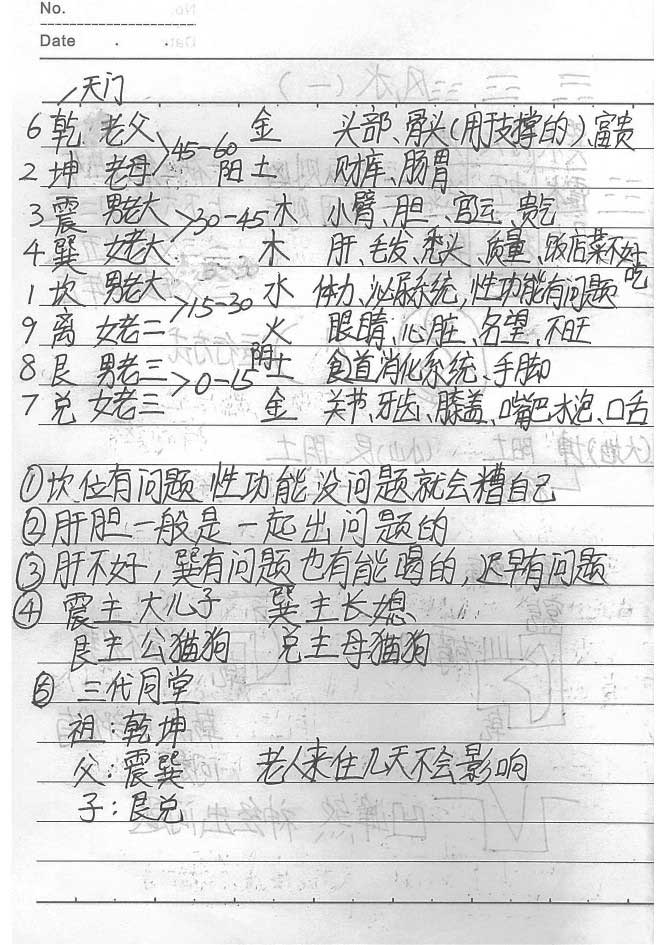 No.
Date . .
天门
6 乾 老父 >45-60 金 头部、骨头(用于支撑的)、富贵
2 坤 老母 阳土 财库、肠胃
3 震 男老大 >30-45 木 小臂、胆、官云、贵气
4 巽 女老大 木 肝、毛发、秃头、质量、饭店菜不好吃
1 坎 男老大 >15-30 水 体力、泌尿系统、性功能有问题
9 离 女老二 火 眼睛、心脏、名望、不旺
8 艮 男老三 >0-15 阴土 食道消化系统、手脚
7 兑 女老三 金 关节、牙齿、膝盖、嘴巴水泡、口舌
①坎位有问题 性功能没问题就会糟自己
②肝胆一般是一起出问题的
③肝不好,巽有问题也有能喝的,迟早有问题
④ 震主大儿子 巽主长媳
艮主公猫狗 兑主母猫狗
⑤ 三代同堂
祖:乾坤
父:震巽 老人来住几天不会影响
子:艮兑